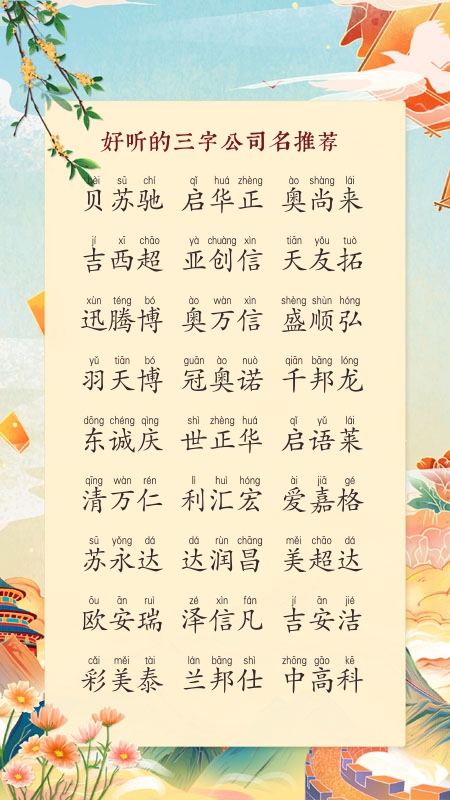 好听的三字公司名推荐
bèi sū chí qǐ huá zhèng ào shàng lái
贝苏驰 启华正 奥尚来
jí xī chāo yà chuàng xìn tiān yǒu tuò
吉西超 亚创信 天友拓
xùn téng bó ào wàn xìn shèng shùn hóng
迅腾博 奥万信 盛顺弘
yǔ tiān bó guān ào nuò qiān bāng lóng
羽天博 冠奥诺 千邦龙
dōng chéng qìng shì zhèng huá qǐ yǔ lái
东诚庆 世正华 启语莱
qīng wàn rén lì huì hóng ài jiā gé
清万仁 利汇宏 爱嘉格
sū yǒng dá dá rùn chāng měi chāo dá
苏永达 达润昌 美超达
ōu ān ruì zé xìn fán jí ān jié
欧安瑞 泽信凡 吉安洁
cǎi měi tài lán bāng shì zhōng gāo kē
彩美泰 兰邦仕 中高科